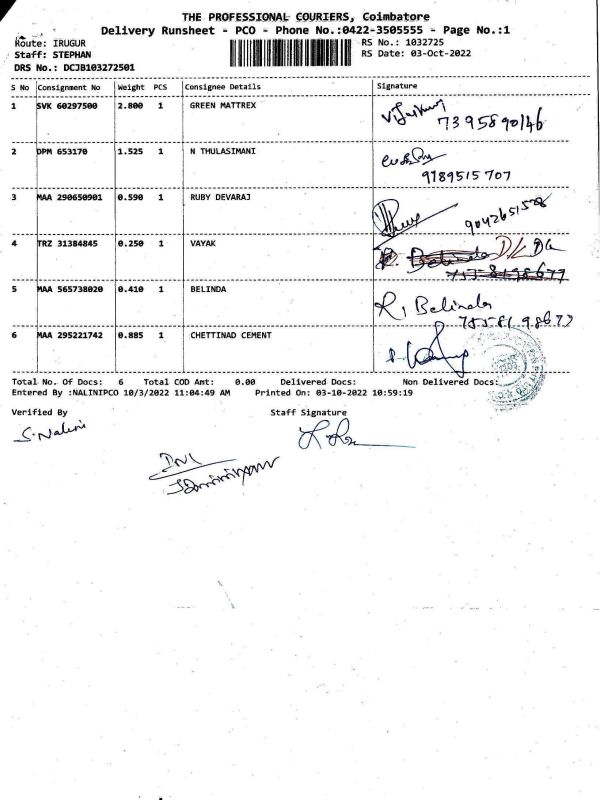 THE PROFESSIONAL COURIERS, Coimbatore
Delivery Runsheet - PCO - Phone No.:0422-3505555 - Page No.:1
Route: IRUGUR RS No.: 1032725
Staff: STEPHAN RS Date: 03-Oct-2022
DRS No.: DCJB103272501
S No Consignment No Weight PCS Consignee Details Signature
1 SVK 60297500 2.800 1 GREEN MATTREX
7395890146
2 DPM 653170 1.525 1 N THULASIMANI
9189515707
3 MAA 290650901 0.590 1 RUBY DEVARAJ
4 TRZ 31384845 0.250 1 VAYAK
5 MAA 565738020 0.410 1 BELINDA
R. Belinda
7558198677
6 MAA 295221742 0.885 1 CHETTINAD CEMENT
Total No. Of Docs: 6 Total COD Amt: 0.00 Delivered Docs: Non Delivered Docs:
Entered By :NALINIPCO 10/3/2022 11:04:49 AM Printed On: 03-10-2022 10:59:19
Verified By Staff Signature
S. Nalini